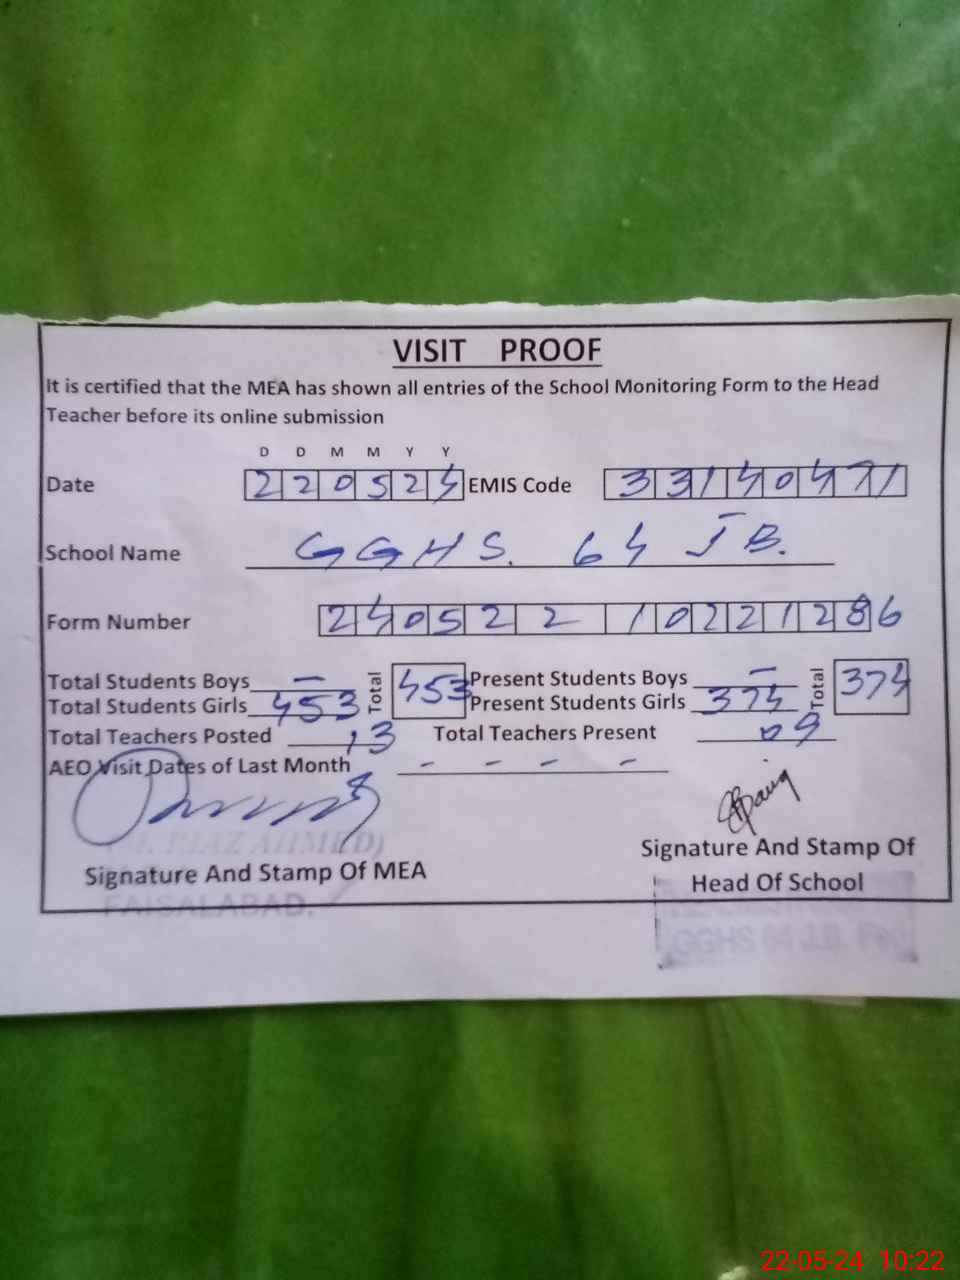 VISIT PROOF
It is certified that the MEA has shown all entries of the School Monitoring Form to the Head
Teacher before its online submission
D D M M Y Y
Date 220524 EMIS Code 33140471
School Name GGHS. 64 JB.
Form Number 24052210221286
Total Students Boys — Total 453 Present Students Boys — Total 374
Total Students Girls 453 Present Students Girls 374
Total Teachers Posted 13 Total Teachers Present 09
AEO Visit Dates of Last Month - - - -
AHMED)
Signature And Stamp Of MEA
FAISALABAD.
Signature And Stamp Of
Head Of School
GGHS 64 J.B.
22-05-24 10:22